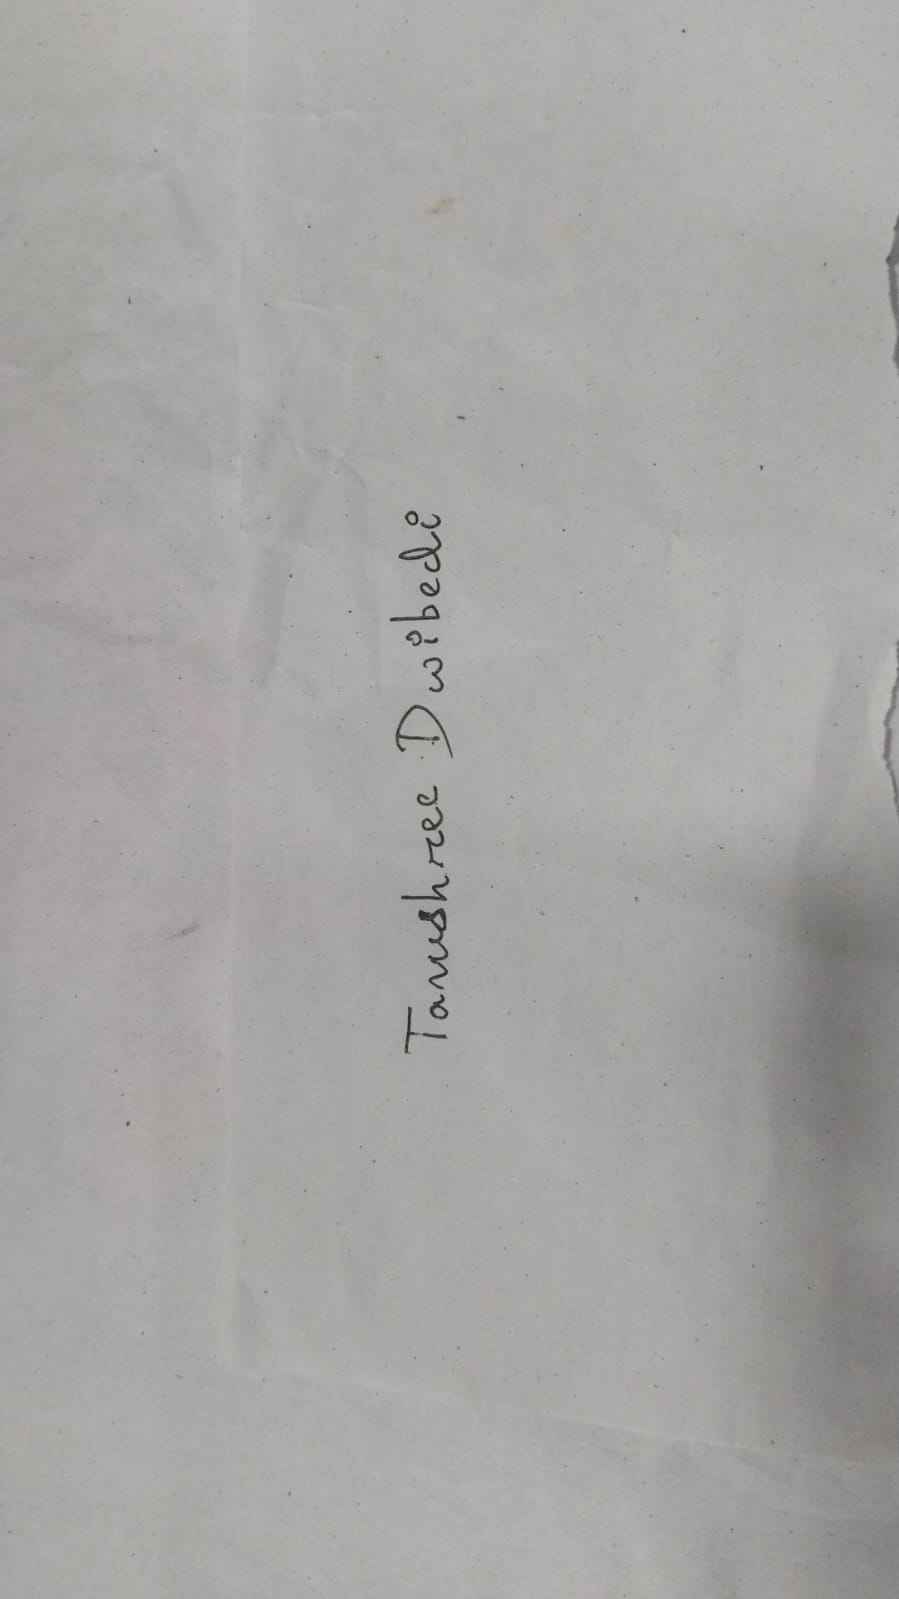 Tanushree Dwibedi